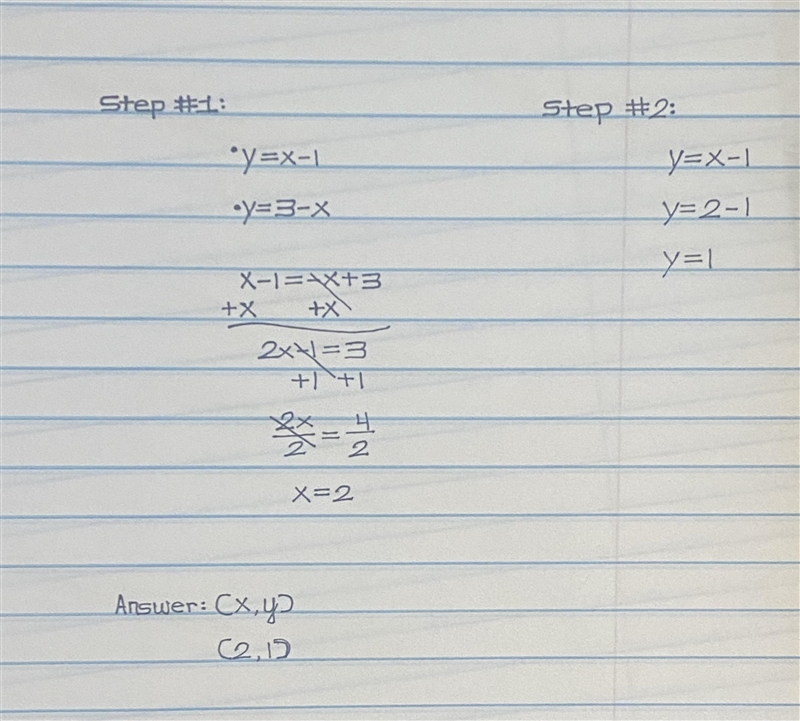 Step #1:
•y=x-1
•y=3-x
x-1=-x+3
+x +x
2x-1=3
+1 +1
2x/2=4/2
x=2
Step #2:
y=x-1
y=2-1
y=1
Answer: (x,y)
(2,1)